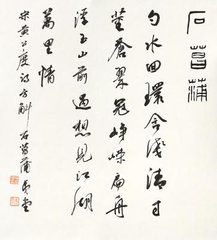 石菖蒲
勺水回環含淺清寸
莖蒼翠冠崢嶸扁舟
浮玉山前過想見江湖
萬里情
宋黃公度詩方酬石菖蒲